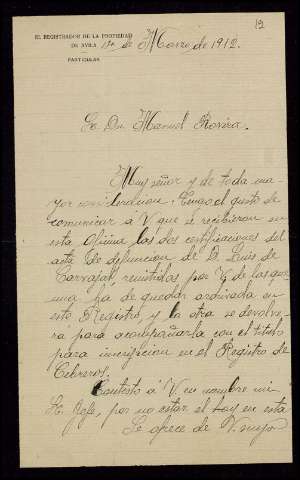 12
EL REGISTRADOR DE LA PROPIEDAD
DE AVILA
PARTICULAR
de Marzo de 1912.
Sr Dn. Manuel Rovira.
Muy señor y de toda ma-
yor consideracion: Tengo el gusto de
comunicar á V. que se recibieron en
esta Oficina las dos certificaciones del
acta de defuncion de D. Luis de
Carvajal, remitidas por V. de las que
una ha de quedar archivada en
este Registro, y la otra se devolve-
ra para acompañarla con el titulo
para inscripcion en el Registro de
Cebreros.
Contesto á V. en nombre mi
Sr. Jefe, por no estar el hoy en esta
Se ofrece de V. suyo